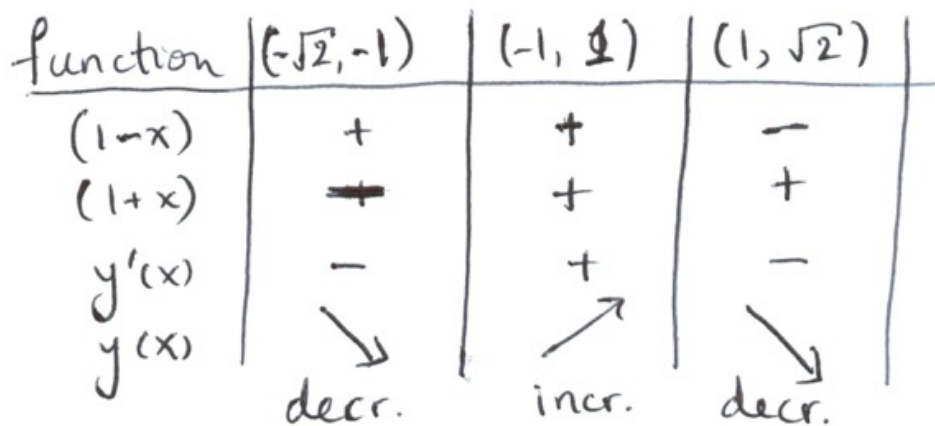 function (-√2, -1) (-1, 1) (1, √2)
(1-x) + + -
(1+x) - + +
y'(x) - + -
y(x) ↘ ↗ ↘
decr. incr. decr.